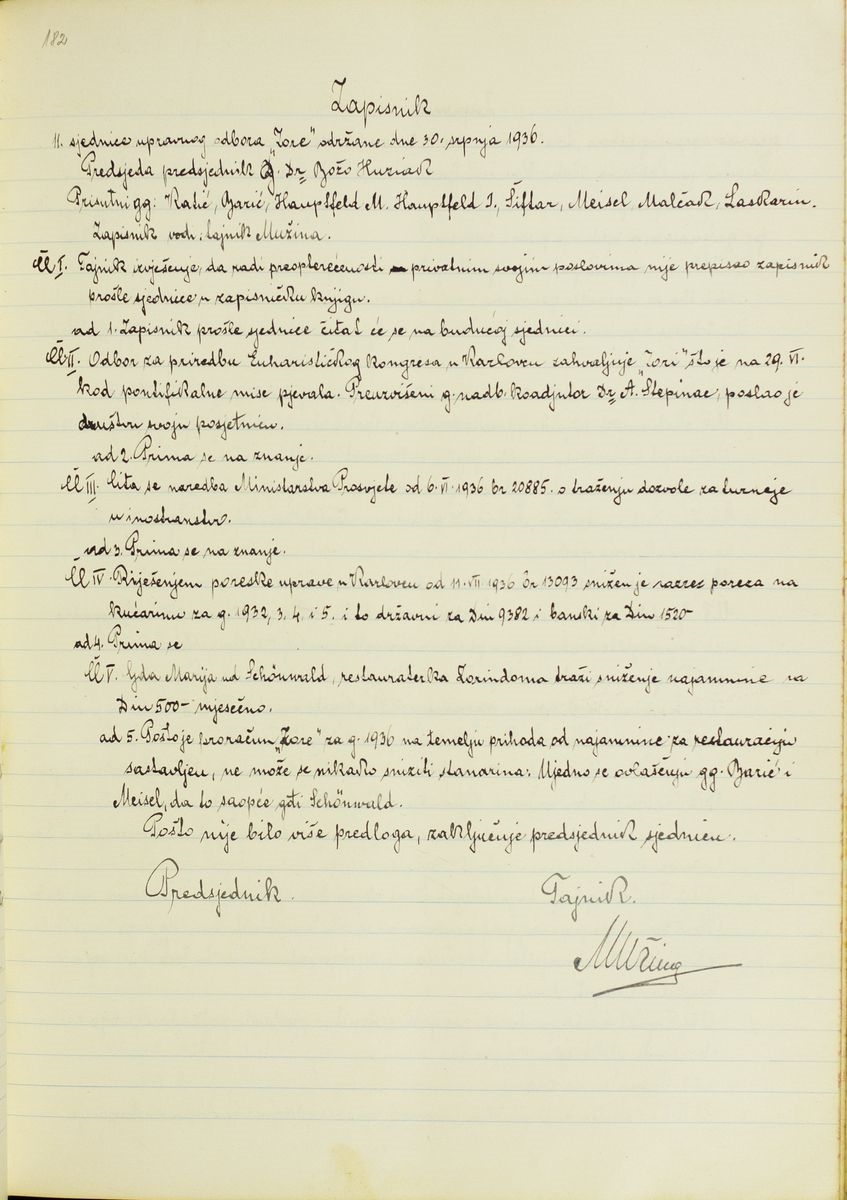 182
Zapisnik
11. sjednice upravnog odbora „Zore" održane dne 30. srpnja 1936.
Predsjeda predsjednik g. Dr Božo Huziak
Prisutni gg: Katić, Barić, Hauptfeld M. Hauptfeld I., Šiftar, Meisel, Malčak, Laskarin.
Zapisnik vodi: tajnik Mužina.
Čl I. Tajnik izvješćuje, da radi preopterećenosti privatnim svojim poslovima nije prepisao zapisnik
prošle sjednice u zapisničku knjigu.
ad 1. Zapisnik prošle sjednice čitat će se na budućoj sjednici.
Čl II. Odbor za priredbu Euharističkog kongresa u Karlovcu zahvaljuje „Zori" što je na 29. VI.
kod pontifikalne mise pjevala. Preuzvišeni g. nadb. koadjutor Dr A. Stepinac, poslao je
društvu svoju posjetnicu.
ad 2. Prima se na znanje.
Čl III. Čita se naredba Ministarstva Prosvjete od 6. VI. 1936 br 20885. o traženju dozvole za turneje
u inostranstvo.
ad 3. Prima se na znanje.
Čl IV. Riješenjem poreske uprave u Karlovcu od 11. VII 1936 br 13093 snižen je razrez poreza na
kućarinu za g. 1932, 3. 4. i 5. i to državni za Din 9382 i banski za Din 1520-
ad 4. Prima se
Čl V. Gđa Marija ud Schönwald, restauraterka Zorindoma traži sniženje najamnine za
Din 500- mjesečno.
ad 5. Pošto je proračun „Zore" za g. 1936 na temelju prihoda od najamnine za restauraciju
sastavljen, ne može se nikako sniziti stanarina. Ujedno se ovlašćuju gg. Barić i
Meisel, da to saopće gđi Schönwald.
Pošto nije bilo više predloga, zaključuje predsjednik sjednicu.
Predsjednik. Tajnik.
MMužina